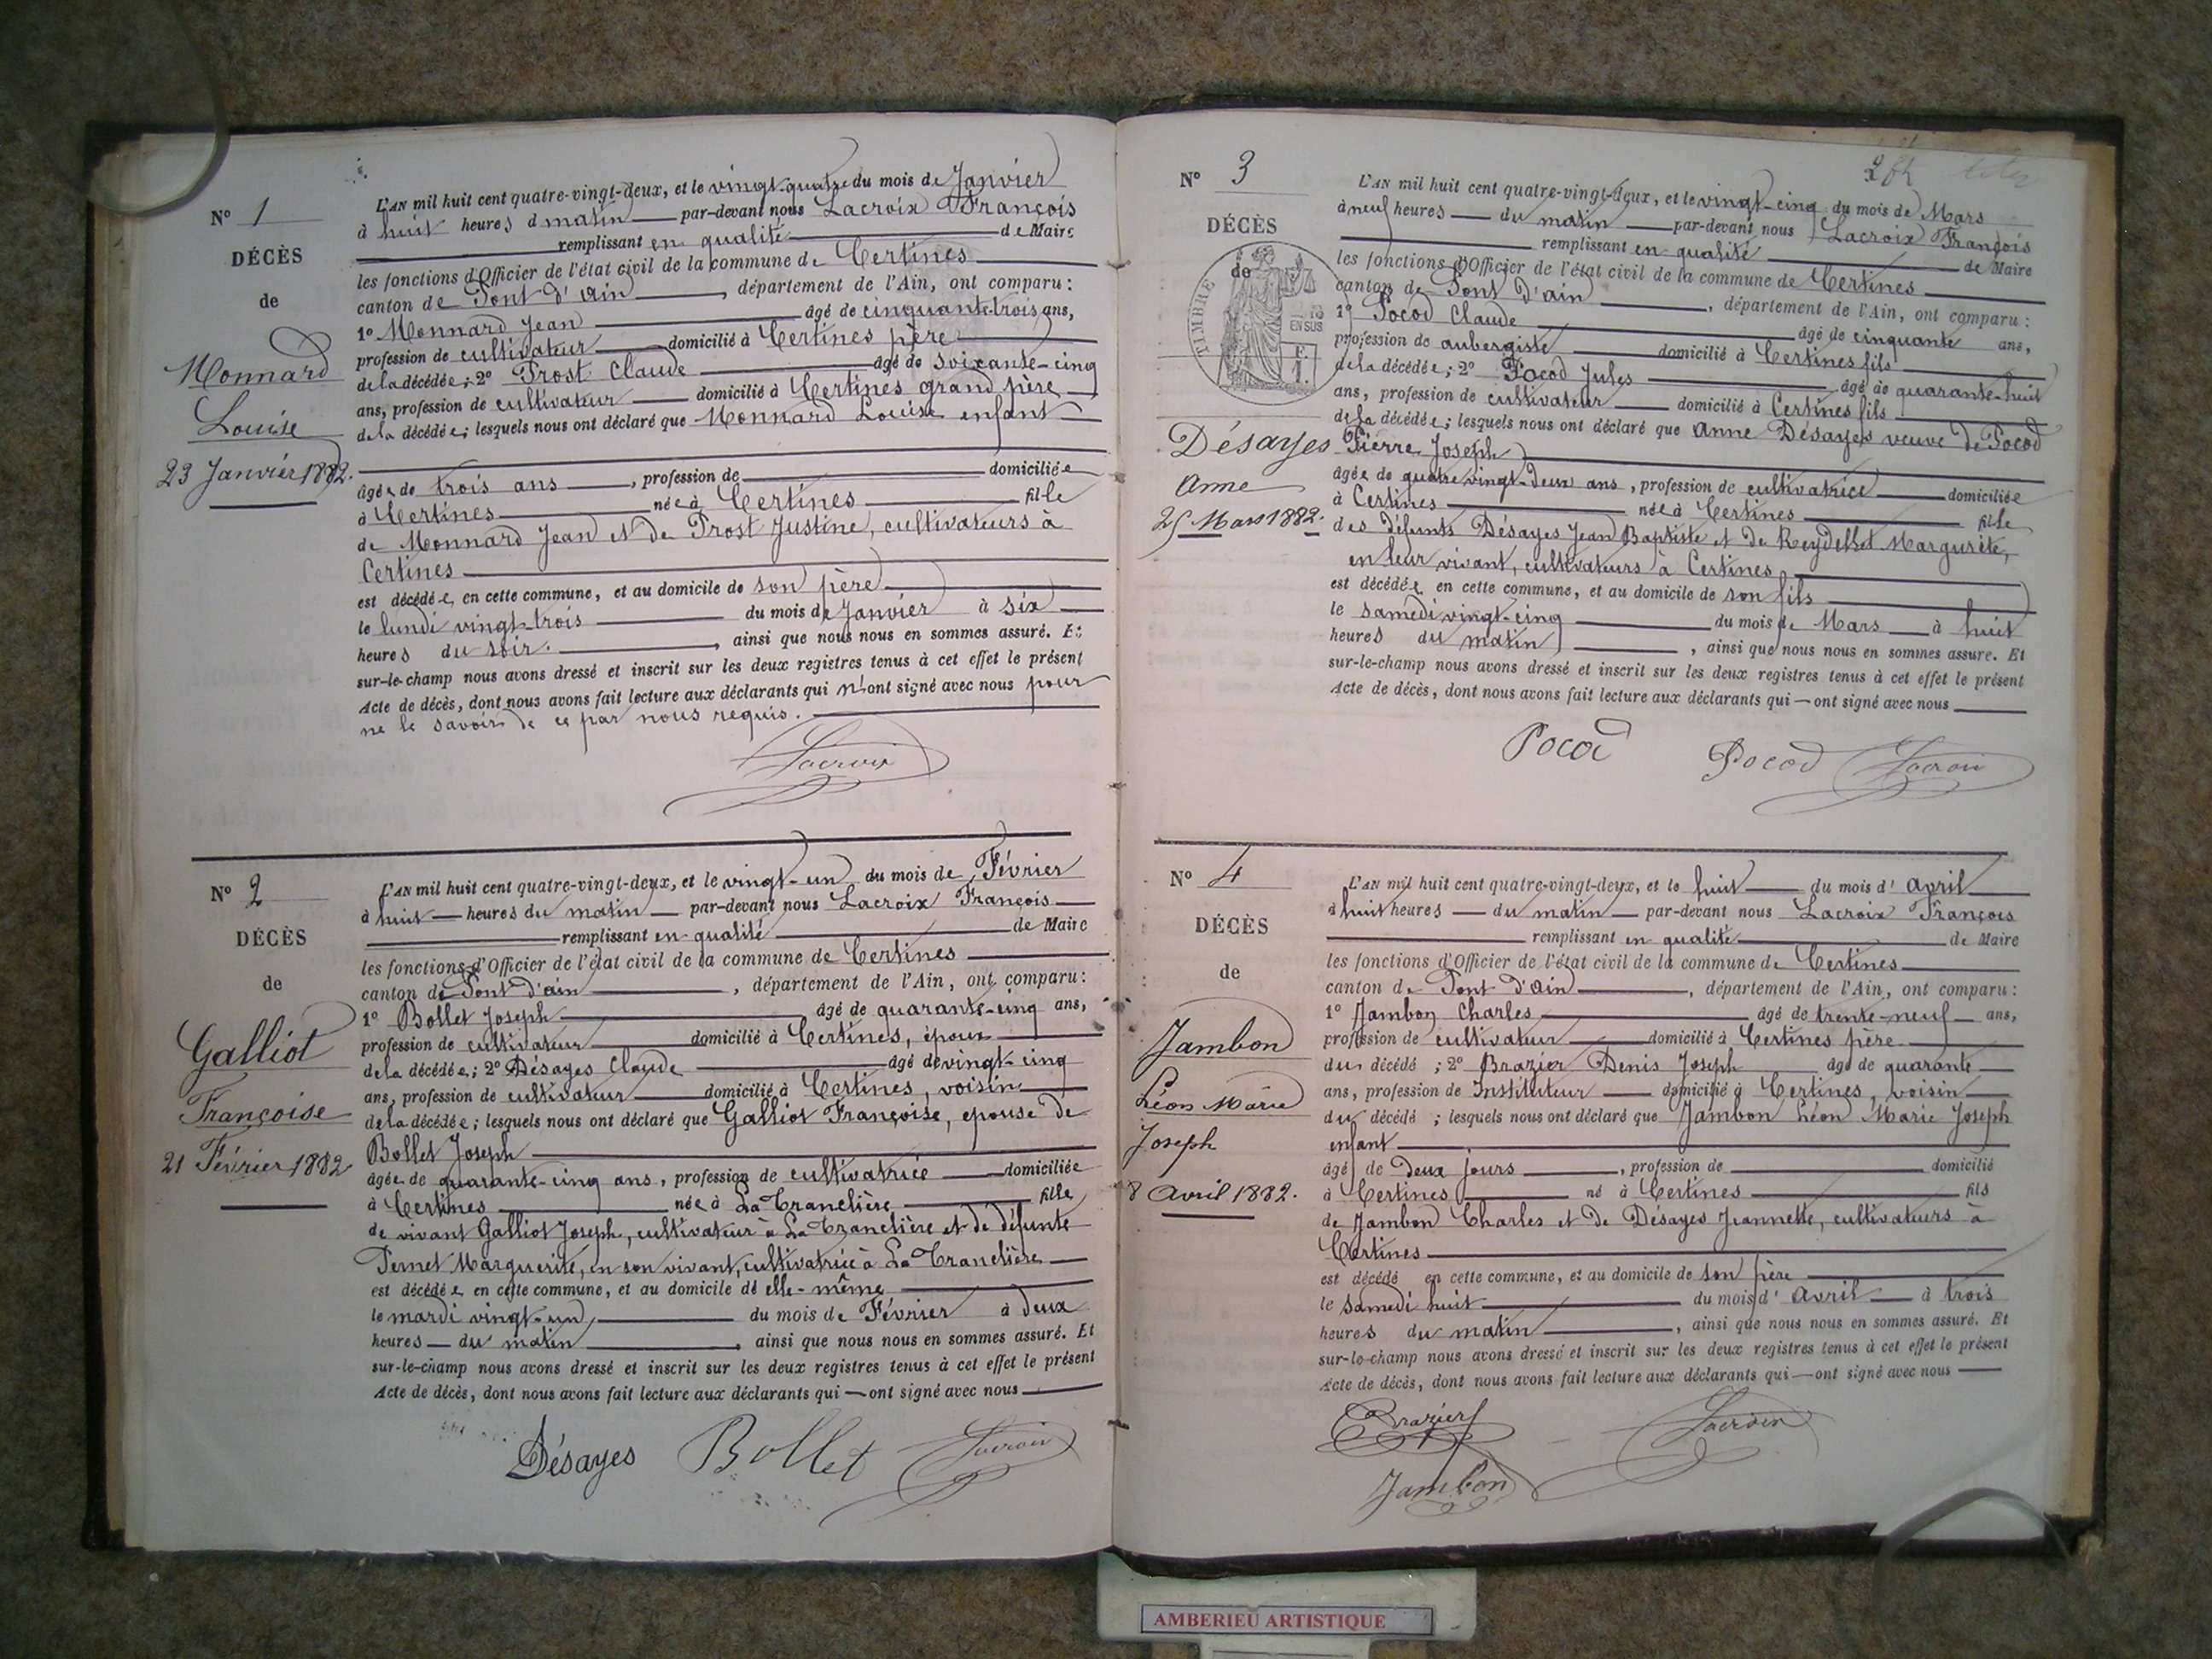 N° 1
DÉCÈS
de
Monnard
Louise
23 Janvier 1882.
L'AN mil huit cent quatre-vingt-deux, et le vingt-quatre du mois de Janvier
à huit heures d matin par-devant nous Lacroix François
remplissant en qualité de Maire
les fonctions d'Officier de l'état civil de la commune de Certines
canton de Pont d'ain, département de l'Ain, ont comparu :
1° Monnard Jean âgé de cinquante-trois ans,
profession de cultivateur domicilié à Certines père
de la décédée ; 2° Prost Claude âgé de soixante-cinq
ans, profession de cultivateur domicilié à Certines grand père
de la décédée ; lesquels nous ont déclaré que Monnard Louise enfant
âgée de trois ans, profession de domiciliée
à Certines née à Certines fille
de Monnard Jean et de Prost Justine, cultivateurs à
Certines
est décédée, en cette commune, et au domicile de son père
le lundi vingt-trois du mois de Janvier à six
heures du soir., ainsi que nous nous en sommes assuré. Et
sur-le-champ nous avons dressé et inscrit sur les deux registres tenus à cet effet le présent
Acte de décès, dont nous avons fait lecture aux déclarants qui n'ont signé avec nous pour
ne le savoir de ce par nous requis.
Lacroix
N° 2
DÉCÈS
de
Galliot
Françoise
21 Février 1882
L'AN mil huit cent quatre-vingt-deux, et le vingt-un du mois de Février
à huit heures du matin par-devant nous Lacroix François
remplissant en qualité de Maire
les fonctions d'Officier de l'état civil de la commune de Certines
canton de Pont d'ain, département de l'Ain, ont comparu :
1° Bollet Joseph âgé de quarante-cinq ans,
profession de cultivateur domicilié à Certines, époux
de la décédée ; 2° Désayes Claude âgé de vingt-cinq
ans, profession de cultivateur domicilié à Certines, voisin
de la décédée ; lesquels nous ont déclaré que Galliot Françoise, épouse de
Bollet Joseph
âgée de quarante-cinq ans, profession de cultivatrice domiciliée
à Certines née à La Tranclière fille
de vivant Galliot Joseph, cultivateur à La Tranclière et de défunte
Pernet Marguerite, en son vivant, cultivatrice à La Tranclière
est décédée en cette commune, et au domicile de elle-même
le mardi vingt-un du mois de Février à deux
heures du matin, ainsi que nous nous en sommes assuré. Et
sur-le-champ nous avons dressé et inscrit sur les deux registres tenus à cet effet le présent
Acte de décès, dont nous avons fait lecture aux déclarants qui — ont signé avec nous
Désayes Bollet Lacroix
N° 3
DÉCÈS
de
TIMBRE
EN SUS
Désayes
Anne
25 Mars 1882.
L'AN mil huit cent quatre-vingt-deux, et le vingt-cinq du mois de Mars
à neuf heures du matin par-devant nous Lacroix François
remplissant en qualité de Maire
les fonctions d'Officier de l'état civil de la commune de Certines
canton de Pont d'ain, département de l'Ain, ont comparu :
1° Pocod Claude âgé de cinquante ans,
profession de aubergiste domicilié à Certines fils
de la décédée ; 2° Pocod Jules âgé de quarante-huit
ans, profession de cultivateur domicilié à Certines fils
de la décédée ; lesquels nous ont déclaré que Anne Désayes veuve de Pocod
Pierre Joseph
âgée de quatre vingt-deux ans, profession de cultivatrice domiciliée
à Certines née à Certines fille
des défunts Désayes Jean Baptiste et de Reydellet Margurite,
en leur vivant, cultivateurs à Certines
est décédée en cette commune, et au domicile de son fils
le samedi vingt-cinq du mois de Mars à huit
heures du matin, ainsi que nous nous en sommes assuré. Et
sur-le-champ nous avons dressé et inscrit sur les deux registres tenus à cet effet le présent
Acte de décès, dont nous avons fait lecture aux déclarants qui — ont signé avec nous
Pocod Pocod Lacroix
N° 4
DÉCÈS
de
Jambon
Léon Marie
Joseph
8 Avril 1882.
L'AN mil huit cent quatre-vingt-deux, et le huit du mois d'avril
à huit heures du matin par-devant nous Lacroix François
remplissant en qualité de Maire
les fonctions d'Officier de l'état civil de la commune de Certines
canton de Pont d'ain, département de l'Ain, ont comparu :
1° Jambon Charles âgé de trente-neuf ans,
profession de cultivateur domicilié à Certines père
du décédé ; 2° Brazier Denis Joseph âgé de quarante
ans, profession de Instituteur domicilié à Certines, voisin
du décédé ; lesquels nous ont déclaré que Jambon Léon Marie Joseph
enfant
âgé de deux jours, profession de domicilié
à Certines né à Certines fils
de Jambon Charles et de Désayes Jeannette, cultivateurs à
Certines
est décédé en cette commune, et au domicile de son père
le samedi huit du mois d'avril à trois
heures du matin, ainsi que nous nous en sommes assuré. Et
sur-le-champ nous avons dressé et inscrit sur les deux registres tenus à cet effet le présent
Acte de décès, dont nous avons fait lecture aux déclarants qui — ont signé avec nous
Brazier Lacroix
Jambon
AMBERIEU ARTISTIQUE